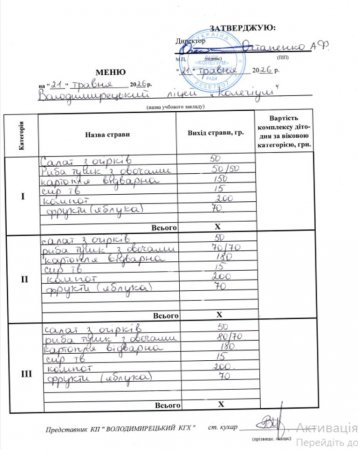 ЗАТВЕРДЖУЮ:
Директор Остапенко А.Ф
М.П. (підпис) (ПІП)
МЕНЮ
на "21" травня 2026р. "21" травня 2026р.
Володимирецький ліцей "Колегіум"
(назва учбового закладу)
Категорія Назва страви Вихід страви, гр. Вартість комплексу діто-дня за віковою категорією, грн.
I
Салат з огірків 50
Риба тушк з овочами 50/50
картопля відварна 150
сир тв 15
компот 200
фрукти (яблука) 70
Всього X
II
салат з огірків 50
риба тушк з овочами 70/70
картопля відварна 180
сир тв 15
компот 200
фрукти (яблука) 70
Всього X
III
салат з огірків 50
риба тушк з овочами 80/70
картопля відварна 180
сир тв 15
компот 200
фрукти (яблука) 70
Всього X
Представник КП " ВОЛОДИМИРЕЦЬКИЙ КГХ " ст. кухар
(прізвище, підпис)
Активація
Перейдіть до